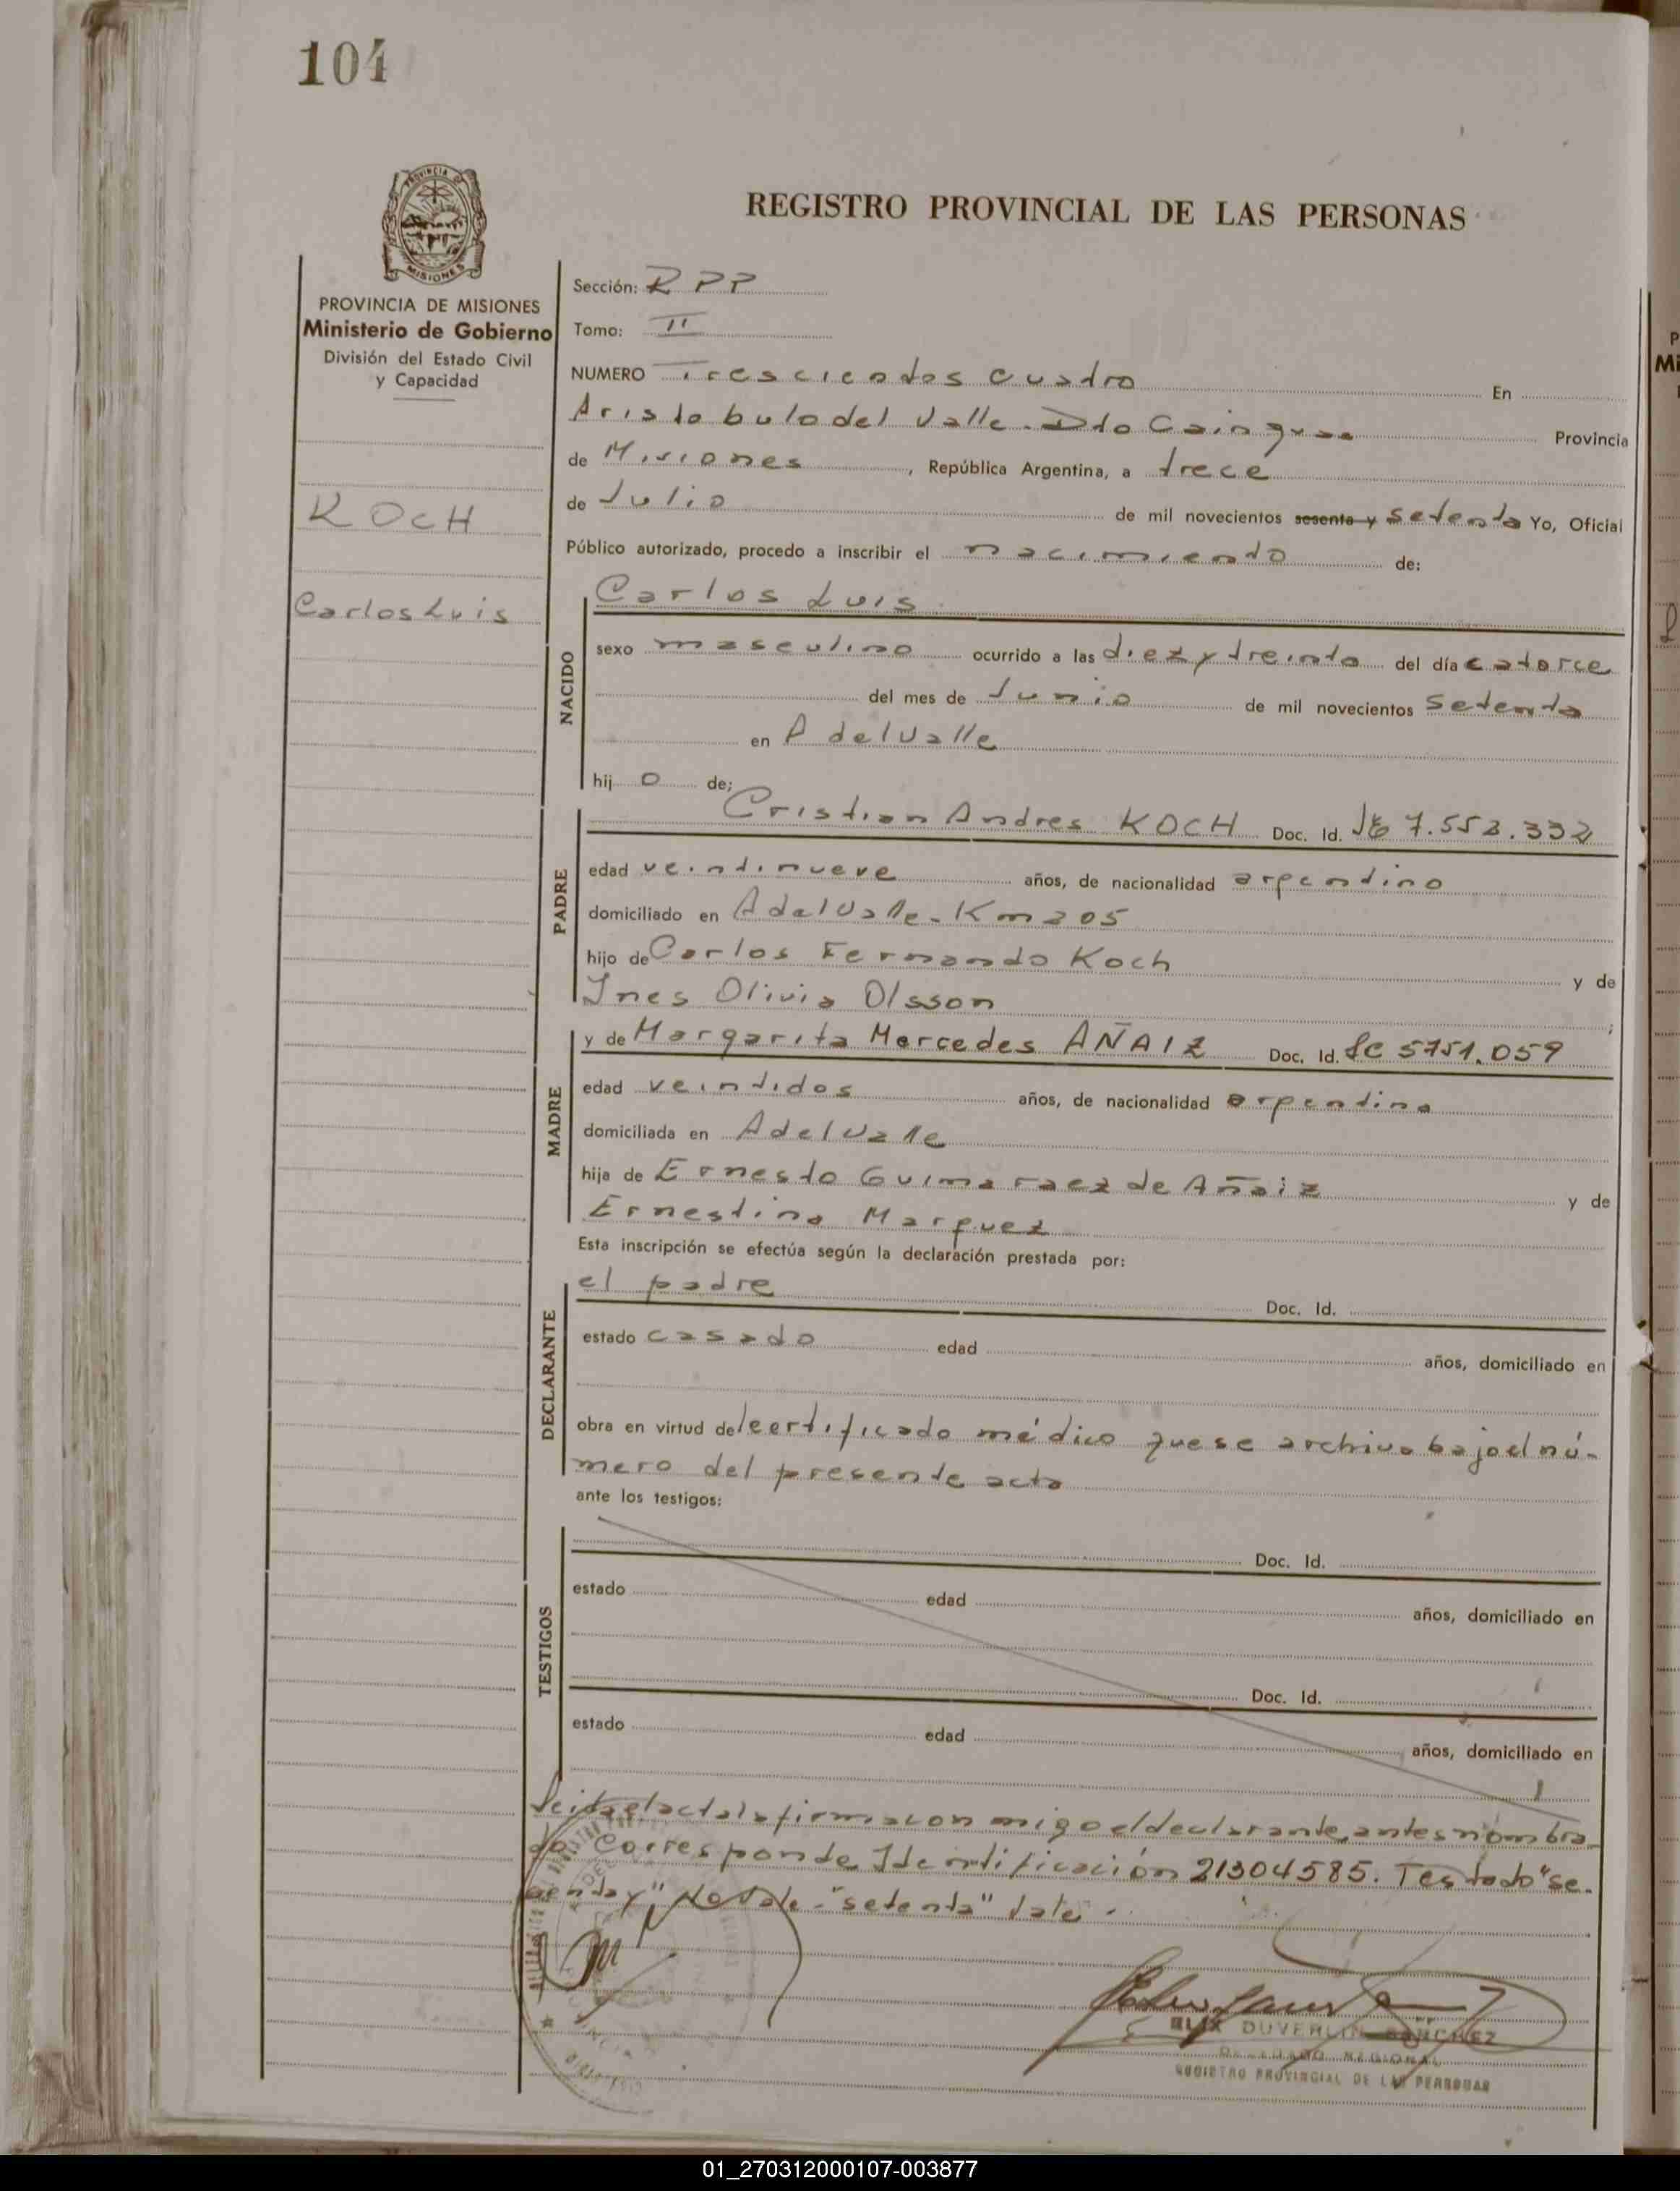 104
REGISTRO PROVINCIAL DE LAS PERSONAS
PROVINCIA DE MISIONES
Ministerio de Gobierno
División del Estado Civil
y Capacidad
KOCH
Carlos Luis
Sección: RPP
Tomo: II
NUMERO Trescientos cuatro En
Aristobulo del Valle - Dto Cainguas Provincia
de Misiones, República Argentina, a trece
de Julio de mil novecientos sesenta y setenta Yo, Oficial
Público autorizado, procedo a inscribir el nacimiento de:
NACIDO
Carlos Luis
sexo masculino ocurrido a las diez y treinta del día catorce
del mes de Junio de mil novecientos setenta
en A del Valle
hij o de;
PADRE
Cristian Andres KOCH Doc. Id. 7.553.332
edad veintinueve años, de nacionalidad argentino
domiciliado en A del Valle - Km 205
hijo de Carlos Fernando Koch y de
Ines Olivia Olsson ;
MADRE
y de Margarita Mercedes AÑAIZ Doc. Id. LC 5751.059
edad veintidos años, de nacionalidad argentina
domiciliada en A del Valle
hija de Ernesto Guimaraez de Añaiz y de
Ernestina Marquez
Esta inscripción se efectúa según la declaración prestada por:
DECLARANTE
el padre Doc. Id.
estado casado edad años, domiciliado en
obra en virtud del certificado médico que se archiva bajo el nú-
mero del presente acta
ante los testigos:
TESTIGOS
Doc. Id.
estado edad años, domiciliado en
Doc. Id.
estado edad años, domiciliado en
Leida el acta la firma con migo el declarante, antes nombra-
do Corresponde Identificación 21304585. Testado "se-
senta y" No Vale - "setenta" Vale -
DUVERLIN SANCHEZ
DELEGADO REGIONAL
REGISTRO PROVINCIAL DE LAS PERSONAS
01_270312000107-003877